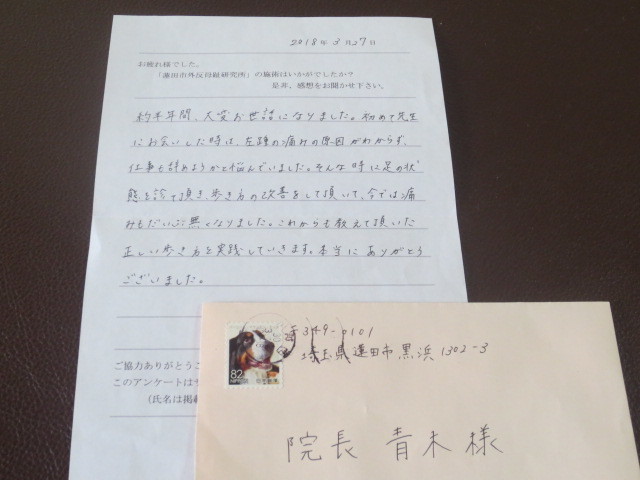 2018年3月27日
お疲れ様でした。
「蓮田市外反母趾研究所」の施術はいかがでしたか?
是非、感想をお聞かせ下さい。
約半年間、大変お世話になりました。初めて先生
にお会いした時は、左踵の痛みの原因がわからず、
仕事も辞めようかと悩んでいました。そんな時に足の状
態を診て頂き、歩き方の改善をして頂いて、今では痛
みもだいぶ無くなりました。これからも教えて頂いた
正しい歩き方を実践していきます。本当にありがとう
ございました。
ご協力ありがとうご
このアンケートは
(氏名は掲載
82
NIPPON
〒349-0101
埼玉県蓮田市黒浜1302-3
院長 青木様